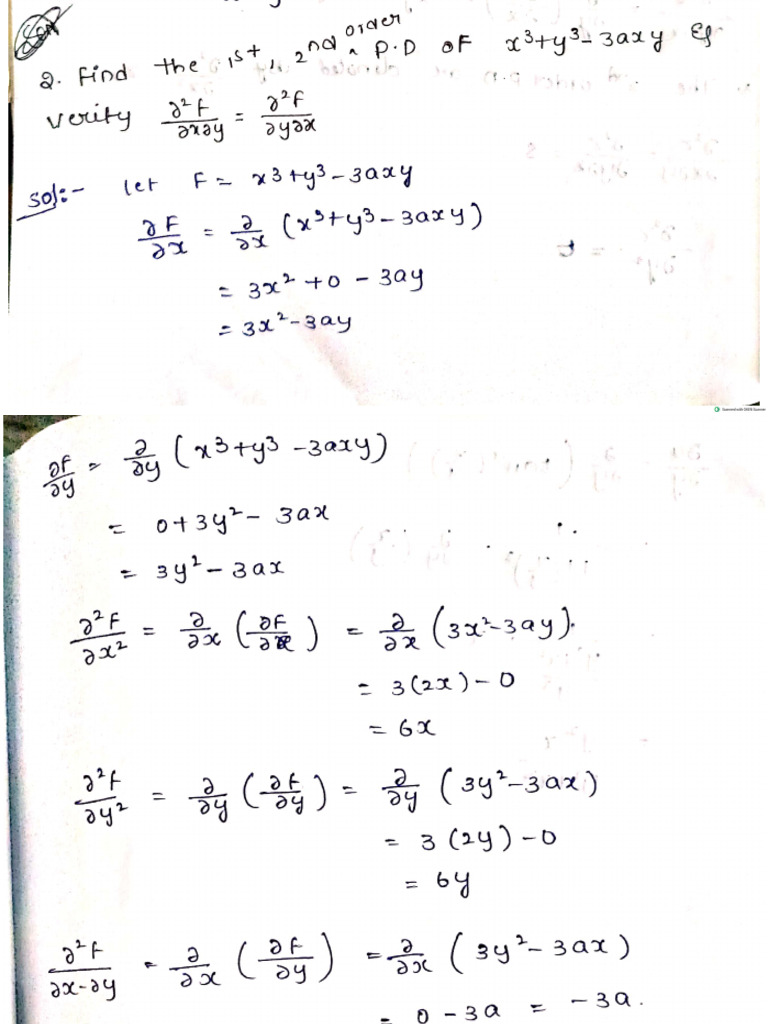 2. Find the 1st, 2nd order P.D OF x³+y³-3axy &
verity ∂²F/∂x∂y = ∂²F/∂y∂x
Sol:- let F = x³+y³-3axy
∂F/∂x = ∂/∂x (x³+y³-3axy)
= 3x² +0 - 3ay
= 3x²-3ay
∂F/∂y = ∂/∂y (x³+y³-3axy)
= 0+3y²- 3ax
= 3y²-3ax
∂²F/∂x² = ∂/∂x (∂F/∂x) = ∂/∂x (3x²-3ay).
= 3(2x)-0
= 6x
∂²F/∂y² = ∂/∂y (∂F/∂y) = ∂/∂y (3y²-3ax)
= 3(2y)-0
= 6y
∂²F/∂x-∂y = ∂/∂x (∂F/∂y) = ∂/∂x (3y²-3ax)
= 0-3a = -3a.